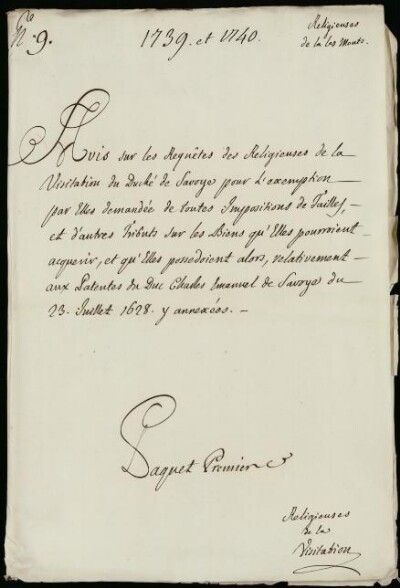 N.º 9.
1739. et 1740.
Religieuses
de la les Monts.
Avis sur les Requêtes des Religieuses de la
Visitation du Duché de Savoye pour l'exemption
par Elles demandée de toutes Impositions de Tailles,
et d'autres Tributs sur les Biens qu'Elles pourroient
acquerir, et qu'Elles possedoient alors, relativement
aux Patentes du Duc Charles Emanuel de Savoye du
23. Juillet 1628. y annexées. -
Paquet Premier
Religieuses
de la
Visitation